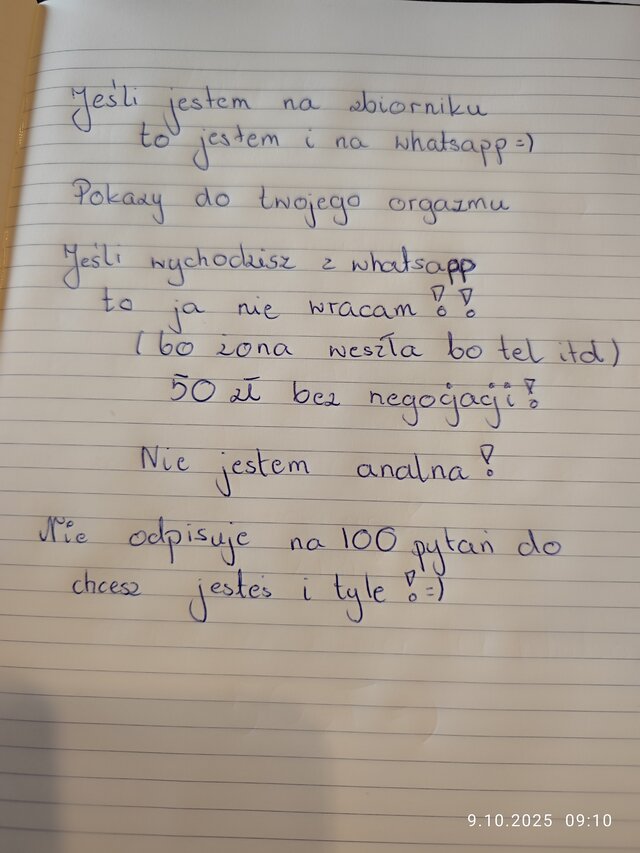 Jeśli jestem na zbiorniku
to jestem i na whatsapp=)
Pokazy do twojego orgazmu
Jeśli wychodzisz z whatsapp
to ja nie wracam !!
(bo żona weszła bo tel itd)
50 zł bez negocjacji!
Nie jestem analna!
Nie odpisuje na 100 pytań do
chcesz jesteś i tyle!=)
9.10.2025 09:10